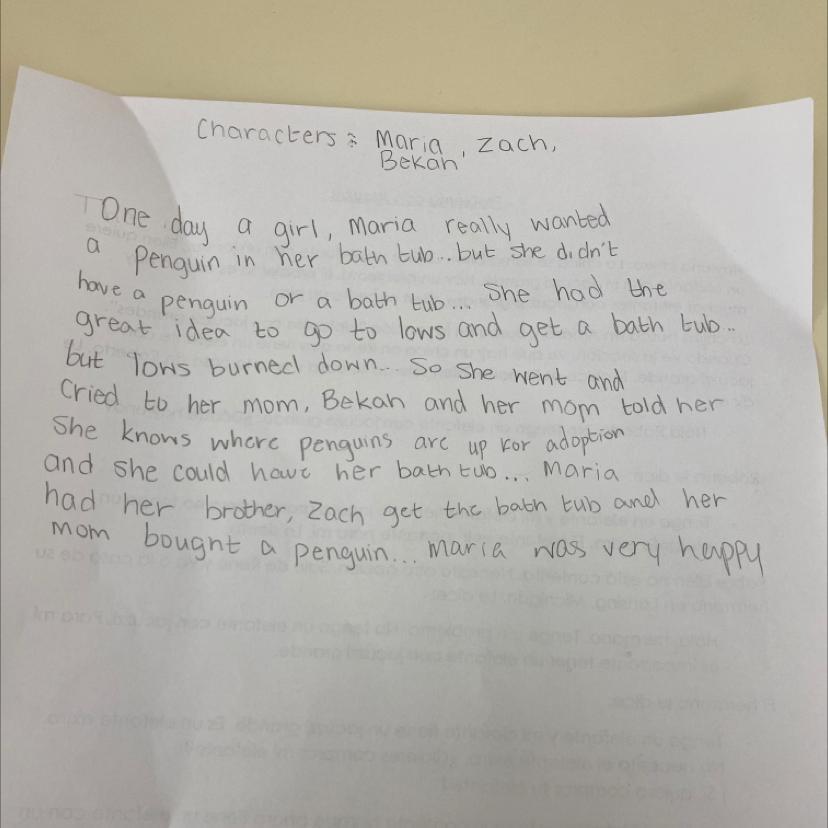 Characters: Maria, Zach,
Bekah
One day a girl, Maria really wanted
a penguin in her bath tub... but she didn't
have a penguin or a bath tub... She had the
great idea to go to lows and get a bath tub..
but lows burned down... So she went and
cried to her mom, Bekah and her mom told her
She knows where penguins are up for adoption
and she could have her bath tub... Maria
had her brother, Zach get the bath tub and her
mom bought a penguin... Maria was very happy